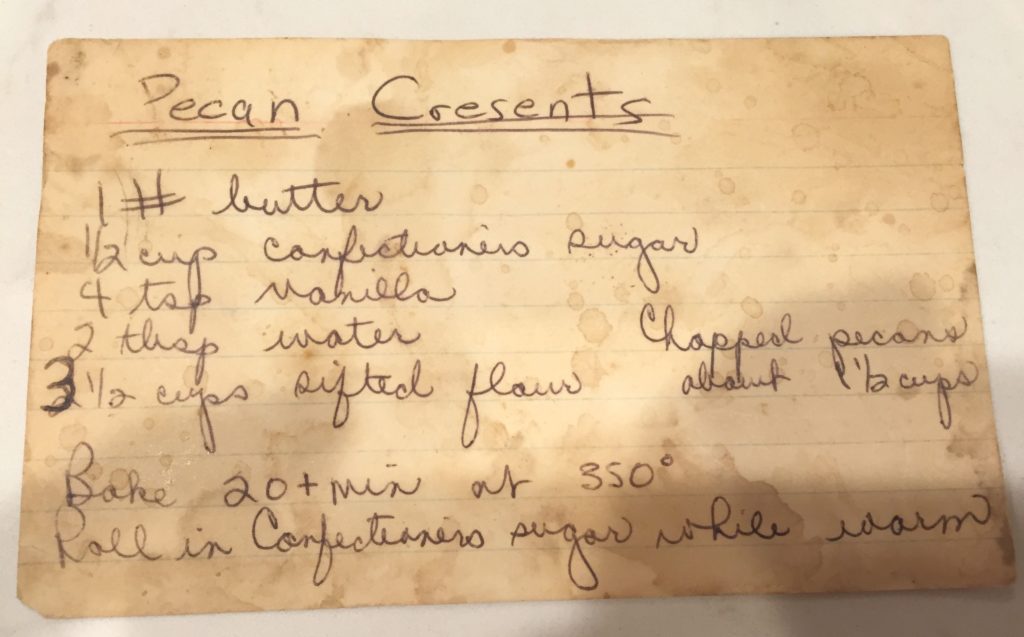 Pecan Cresents
1 # butter
1/2 cup confectioners sugar
4 tsp vanilla
2 tbsp water
3 1/2 cups sifted flour
Chopped pecans
about 1 1/2 cups
Bake 20+ min at 350°
Roll in Confectioners sugar while warm